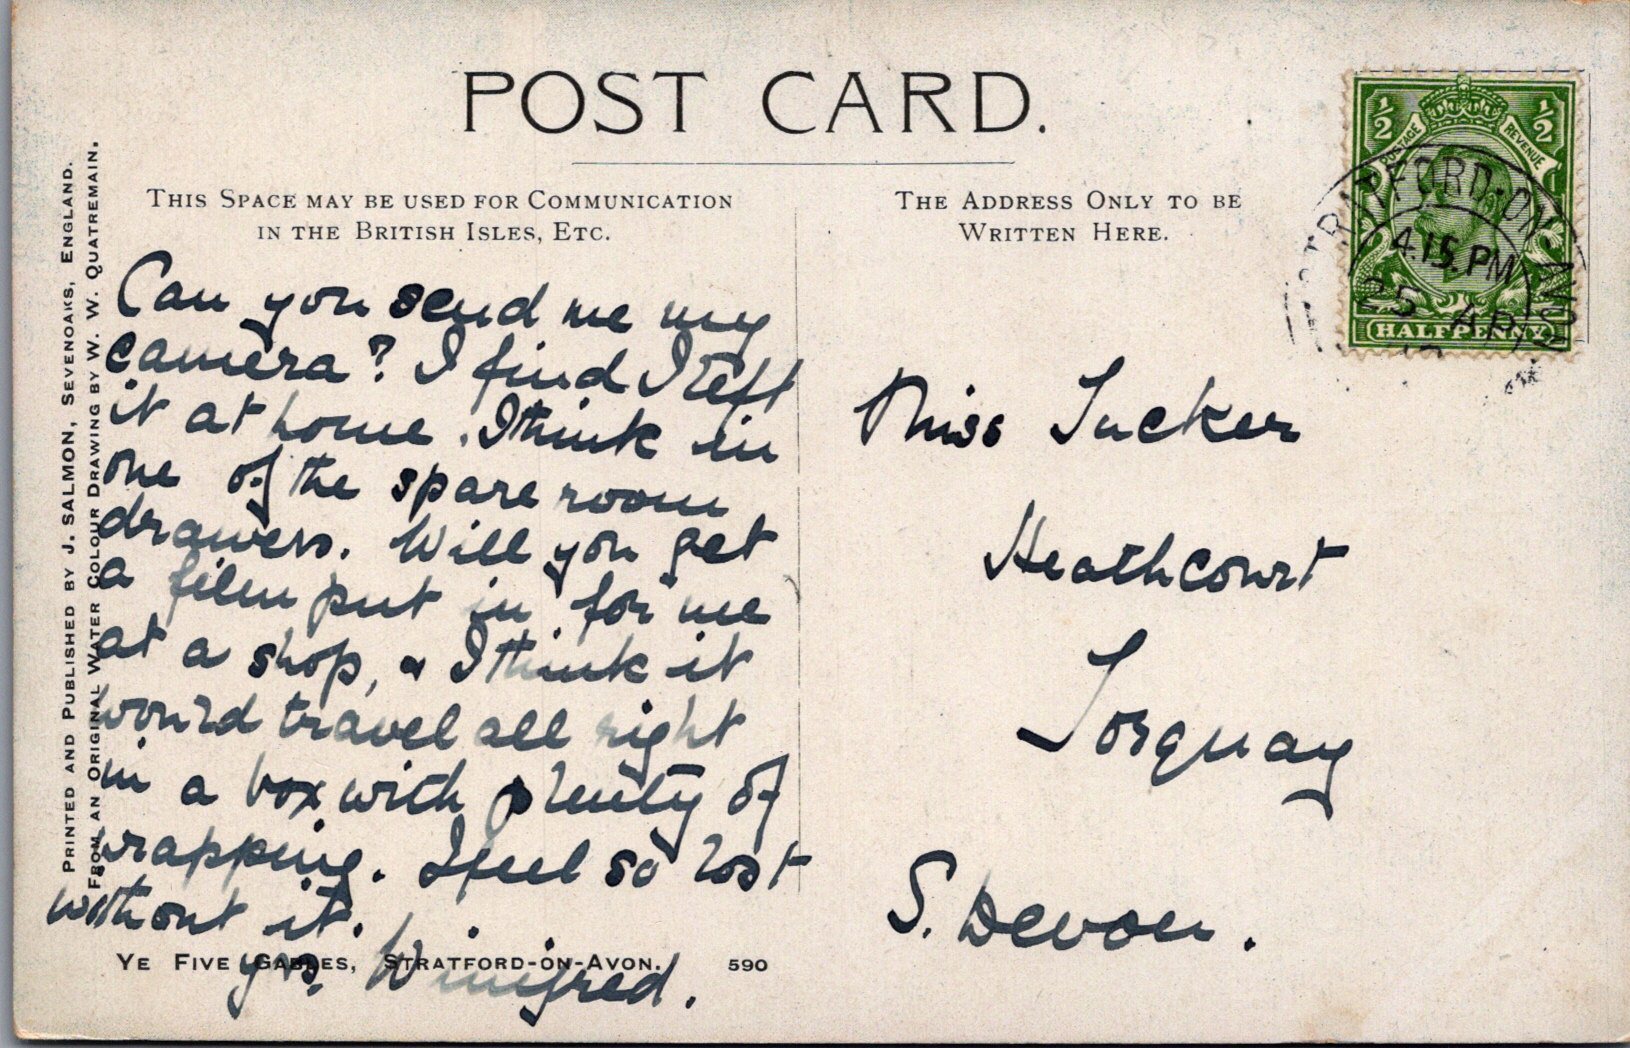 POST CARD.
THIS SPACE MAY BE USED FOR COMMUNICATION
IN THE BRITISH ISLES, ETC.
THE ADDRESS ONLY TO BE
WRITTEN HERE.
½ ½
POSTAGE REVENUE
HALFPENNY
STRATFORD-ON-AVON
4.15.PM
25 AP
Can you send me my
camera? I find I left
it at home. I think in
one of the spare room
drawers. Will you get
a film put in for me
at a shop, & I think it
would travel all right
in a box with plenty of
wrapping. I feel so lost
without it.
yrs. Winifred.
Miss Tucker
Heathcourt
Torquay
S. Devon.
PRINTED AND PUBLISHED BY J. SALMON, SEVENOAKS, ENGLAND.
FROM AN ORIGINAL WATER COLOUR DRAWING BY W. W. QUATREMAIN.
YE FIVE GABLES, STRATFORD-ON-AVON. 590